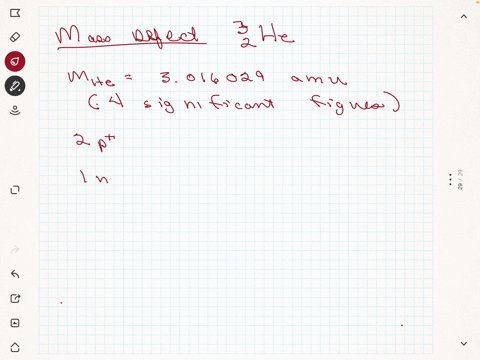 Mass Defect ³₂He
mHe = 3.016029 amu
(:4 significant figures)
2 p⁺
1 n
29 / 29